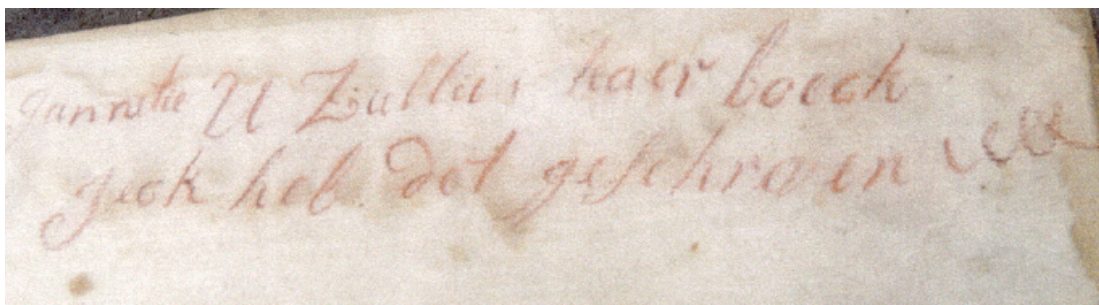 Jannetie U Ziullii haer boeck
jeck heb dat geschreven